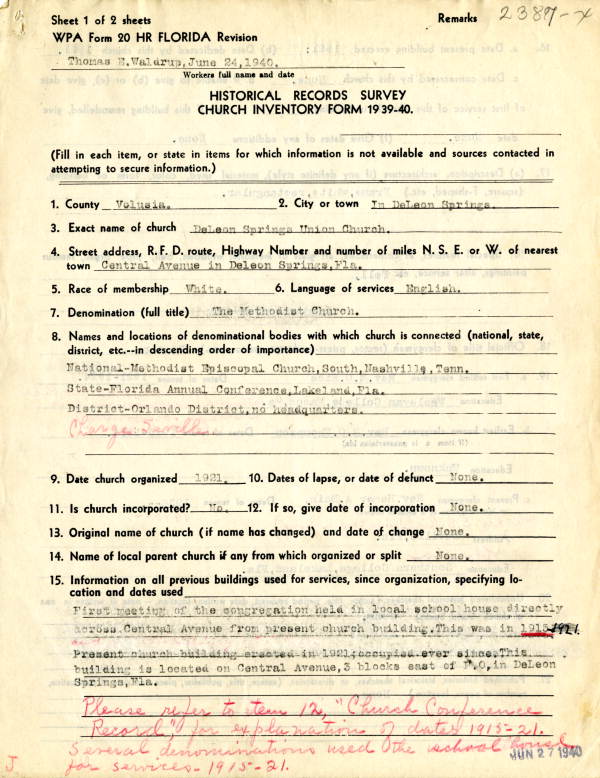 Sheet 1 of 2 sheets
Remarks 2387-x
WPA Form 20 HR FLORIDA Revision
Thomas E.Waldrup,June 24,1940.
Workers full name and date
HISTORICAL RECORDS SURVEY
CHURCH INVENTORY FORM 1939-40.
(Fill in each item, or state in items for which information is not available and sources contacted in
attempting to secure information.)
1. County Volusia. 2. City or town In DeLeon Springs.
3. Exact name of church DeLeon Springs Union Church.
4. Street address, R. F. D. route, Highway Number and number of miles N. S. E. or W. of nearest
town Central Avenue in Deleon Springs,Fla.
5. Race of membership White. 6. Language of services English.
7. Denomination (full title) The Methodist Church.
8. Names and locations of denominational bodies with which church is connected (national, state,
district, etc.--in descending order of importance)
National-Methodist Episcopal Church,South,Nashville,Tenn.
State-Florida Annual Conference,Lakeland,Fla.
District-Orlando District,no headquarters.
Charge: Seville
9. Date church organized 1921. 10. Dates of lapse, or date of defunct None.
11. Is church incorporated? No. 12. If so, give date of incorporation None.
13. Original name of church (if name has changed) and date of change None.
14. Name of local parent church if any from which organized or split None.
15. Information on all previous buildings used for services, since organization, specifying lo-
cation and dates used
First meeting of the congregation held in local school house directly
across Central Avenue from present church building.This was in 1915-1921.
Present church building erected in 1921;occupied ever since.This
building is located on Central Avenue,3 blocks east of P.O,in DeLeon
Springs,Fla.
Please refer to item 12, "Church Conference
Record," for explanation of dates 1915-21.
Several denominations used the school house
for services - 1915-21.
JUN 27 1940
J